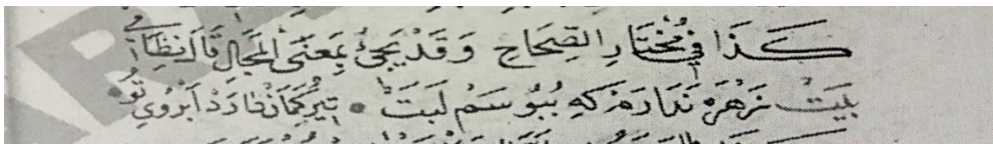 كَذَا فِي مُخْتَارِ الصِّحَاحِ وَقَدْ يَجِئُ بِمَعْنَى الْمَجَالِ قَالَ نِظَامِيُّ
بَيْتْ زَهْرَهْ نَدَارَمْ كِهِ بُبُوسَمْ لَبَتْ • تِيرُ كَمَانْ دَارَدْ اَبْرُويِ تُو •